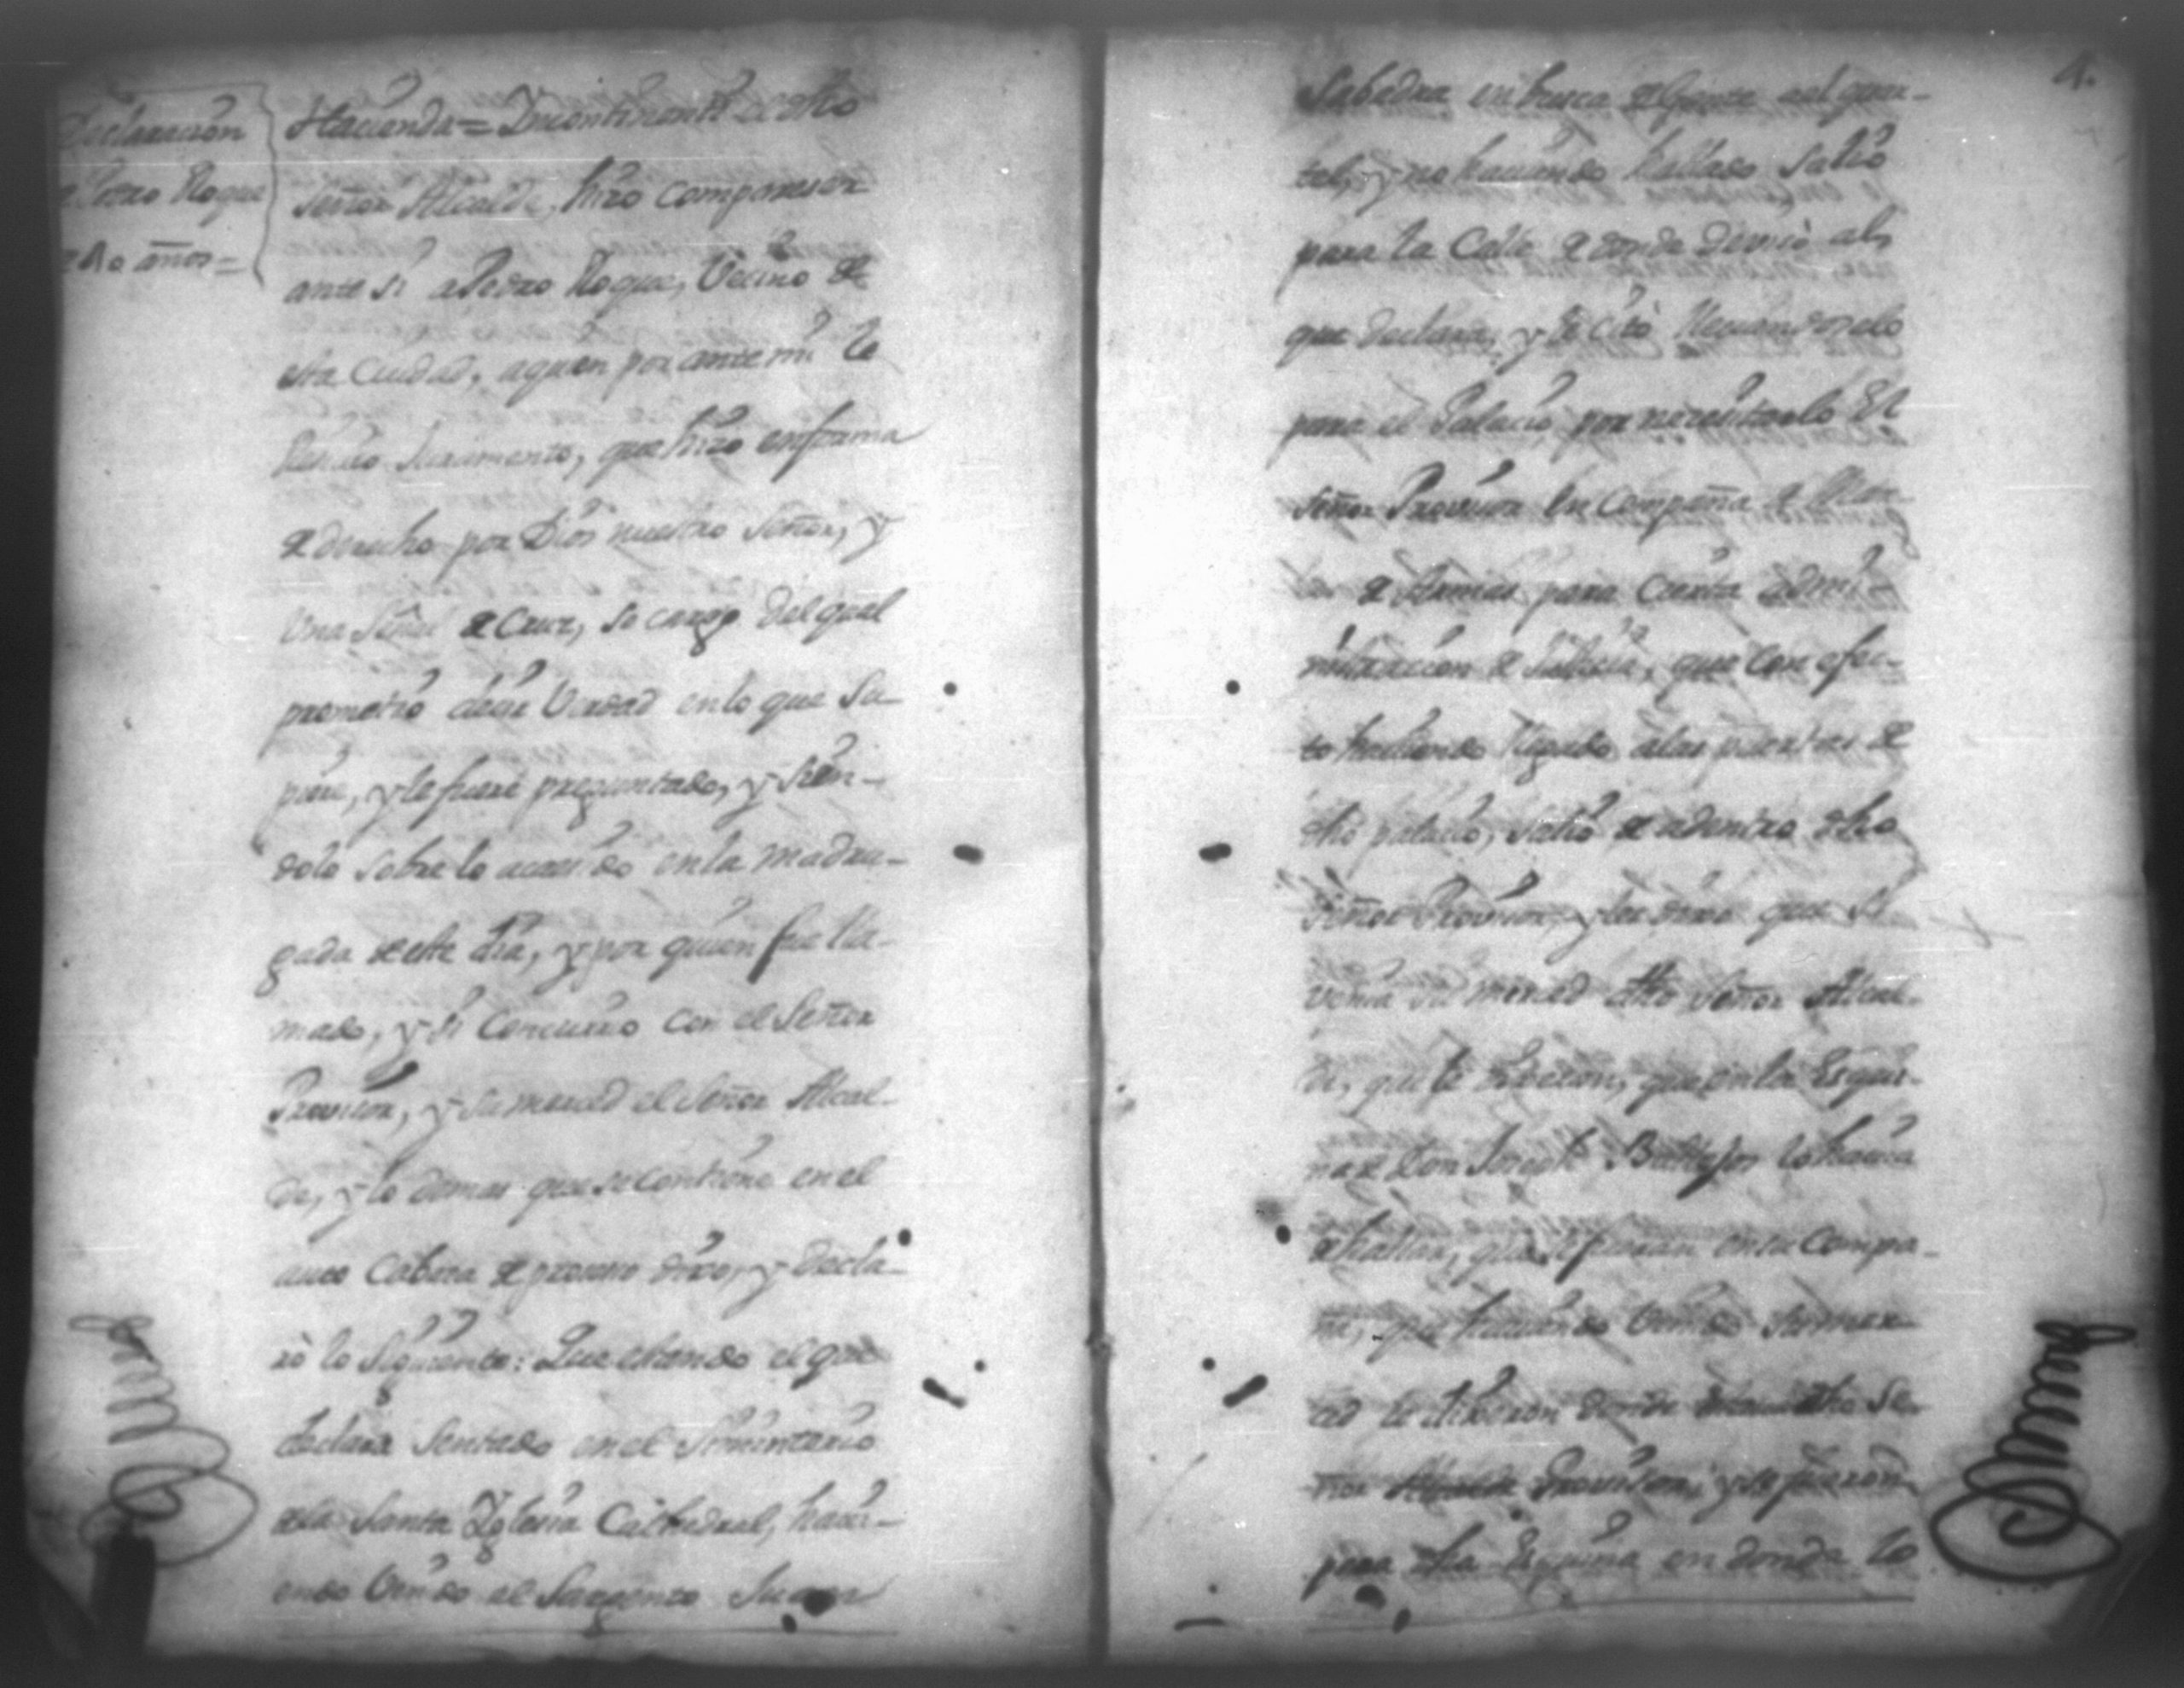 Declaracion
Pedro Roque
40 años =
Hacienda = Yncontinenti dicho
Señor Alcalde, hizo compareser
ante si a Pedro Roque, Vecino de
esta Ciudad, aquien por ante mi le
Resiuio Juramento, que hizo enforma
de derecho por Dios nuestro Señor, y
Una Señal de Cruz, so cargo del qual
prometio decir Verdad en lo que Su-
piere, y le fuere preguntado, y sien-
dolo sobre lo acaesido en la madru-
gada de este dia, y por quien fue lla-
mado, y si Concurrio con el Señor
Provisor, y Su merced el Señor Alcal-
de, y lo demas que se contiene en el
auto Cabeza de proceso dixo, y decla-
rò lo Siguiente: Que estando el que
declara Sentado en el Simintario
de la Santa Yglesia Cathedral, havi-
endo Venido el Sargento Juan
4.
Sabedra en busca de Gente al quar-
tel, y no haviendo hallado Salio
para la Calle de donde al
que declara, y le Citò lleuandoselo
para el Palacio por necesitarlo El
Señor Provisor en Compañia de
de Armas para Cierta admi-
nistracion de Justicia, que con efec-
to haviendo llegado a las puertas de
dho palacio, Saliò de adentro dho
Señor Provisor, y les dixo que Si
venia su merced dho Señor Alcal-
de, que le dixeran, que en la Esqui-
na de Don Joseph lo havia
de hallar, que se fueran en su Compa-
ñia, que haviendo Venido su mer-
ced le dixeron donde estaua dho Se-
ñor Provisor, y se fueron
para dha Esquina en donde lo